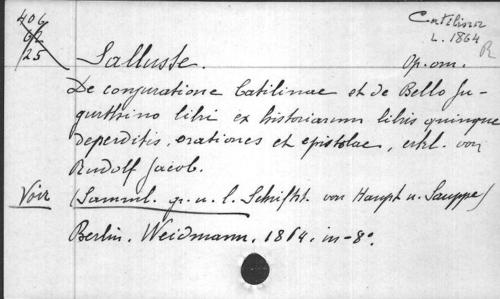 406
62
25
Catilina
L. 1864
R
Salluste.
Op. om.
De conjuratione Catilinae et de Bello Ju-
gurthino libri ex historiarum libris quinque
deperditis, orationes et epistolae, erkl. von
Rudolf Jacob.
Voir
(Samml. gr. u. l. Schriftst. von Haupt u. Sauppe)
Berlin. Weidmann, 1864, in-8o.